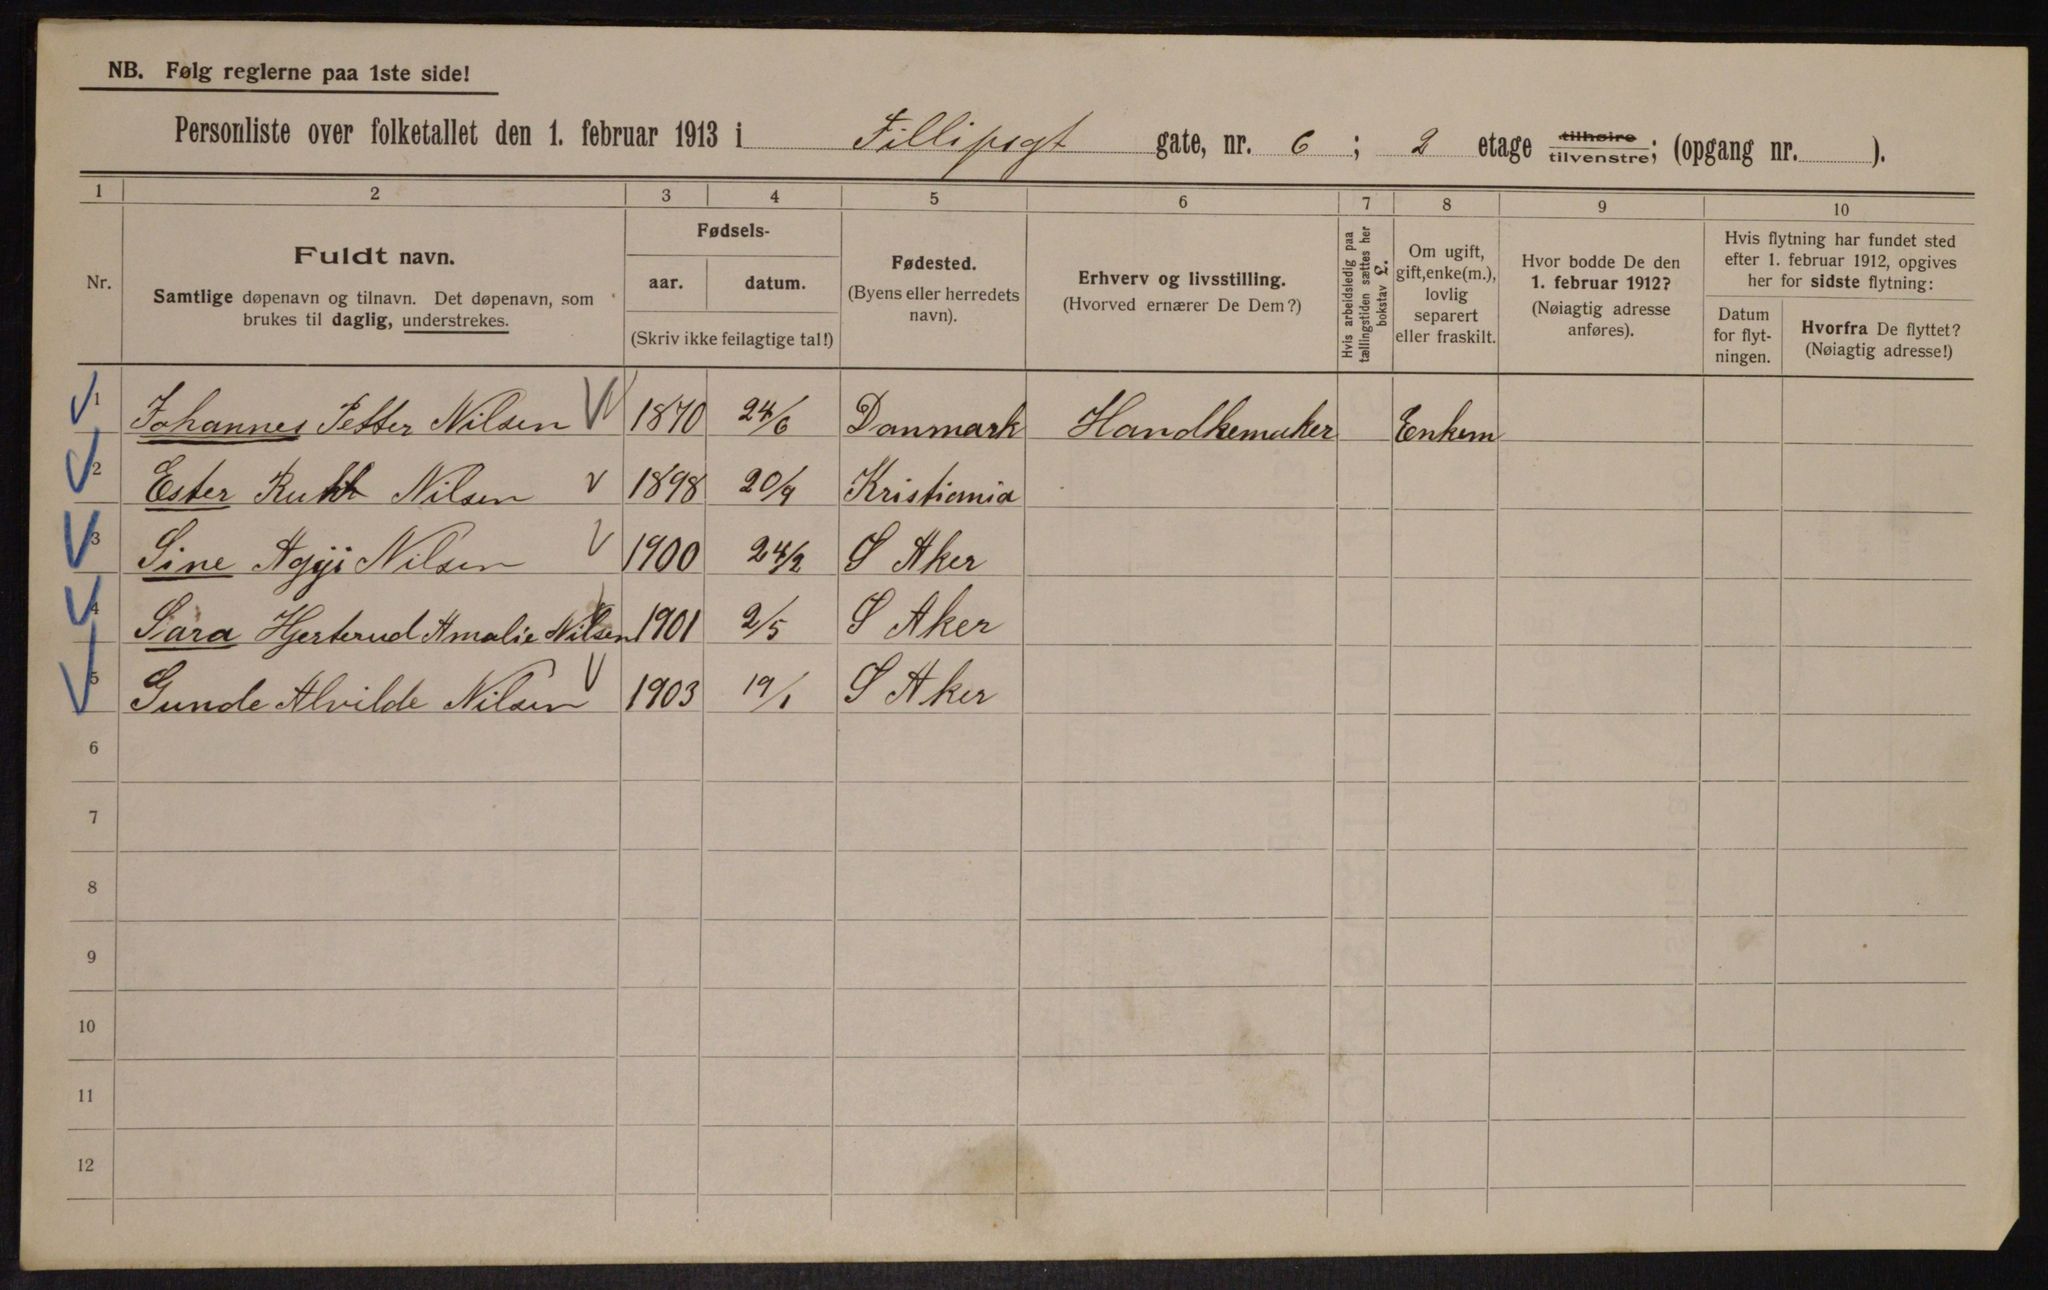 NB. Følg reglerne paa 1ste side!
Personliste over folketallet den 1. februar 1913 i Fillipsgt gate, nr. 6; 2 etage tilhøire tilvenstre; (opgang nr. ).
1 2 3 4 5 6 7 8 9 10
Nr.
Fuldt navn.
Samtlige døpenavn og tilnavn. Det døpenavn, som
brukes til daglig, understrekes.
Fødsels-
aar. datum.
(Skriv ikke feilagtige tal!)
Fødested.
(Byens eller herredets
navn).
Erhverv og livsstilling.
(Hvorved ernærer De Dem?)
Hvis arbeidsledig paa
tællingstiden sættes her
bokstav L.
Om ugift,
gift, enke(m.),
lovlig
separert
eller fraskilt.
Hvor bodde De den
1. februar 1912?
(Nøiagtig adresse
anføres).
Hvis flytning har fundet sted
efter 1. februar 1912, opgives
her for sidste flytning:
Datum
for flyt-
ningen.
Hvorfra De flyttet?
(Nøiagtig adresse!)
1 Johannes Petter Nilsen 1870 24/6 Danmark Handkemaker Enkem
2 Ester Ruth Nilsen 1898 20/9 Kristiania
3 Sine Nilsen 1900 24/2 S Aker
4 Sara Hjerterud Amalie Nilsen 1901 2/5 S Aker
5 Gunde Alvilde Nilsen 1903 19/1 S Aker
6
7
8
9
10
11
12